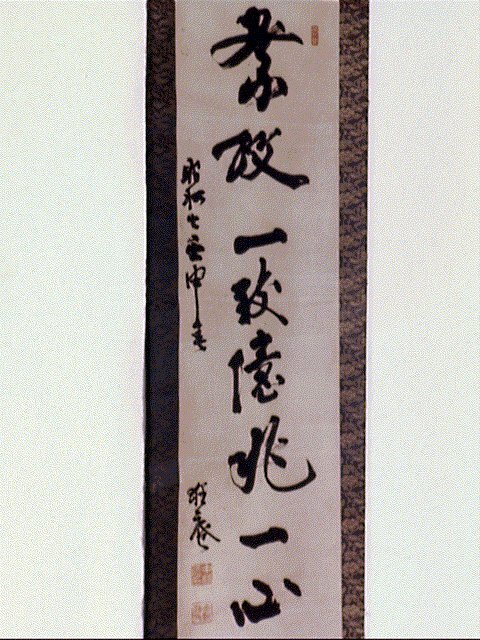 祭政一致億兆一心
昭和七壬申春